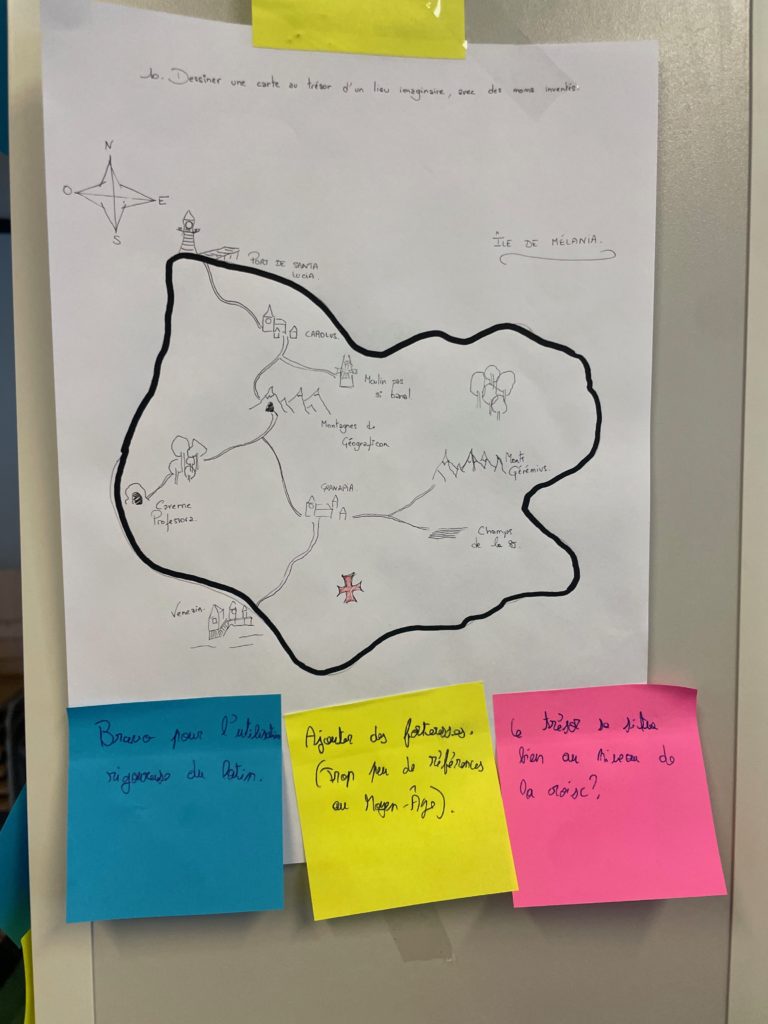 10. Dessiner une carte au trésor d'un lieu imaginaire, avec des noms inventés.
N
O
E
S
ÎLE DE MÉLANIA.
PORT DE SANTA
LUCIA.
CAROLUS.
Moulin pas
si banal
Montagnes de
Géograficon.
Caverne
Professora.
GRANAPIA.
Monts
Gérémius.
Champs
de la
Venezin.
Bravo pour l'utilisation
rigoureuse du latin.
Ajouter des forteresses.
(Trop peu de références
au Moyen-Âge).
Le trésor se situe
bien au niveau de
la croix?